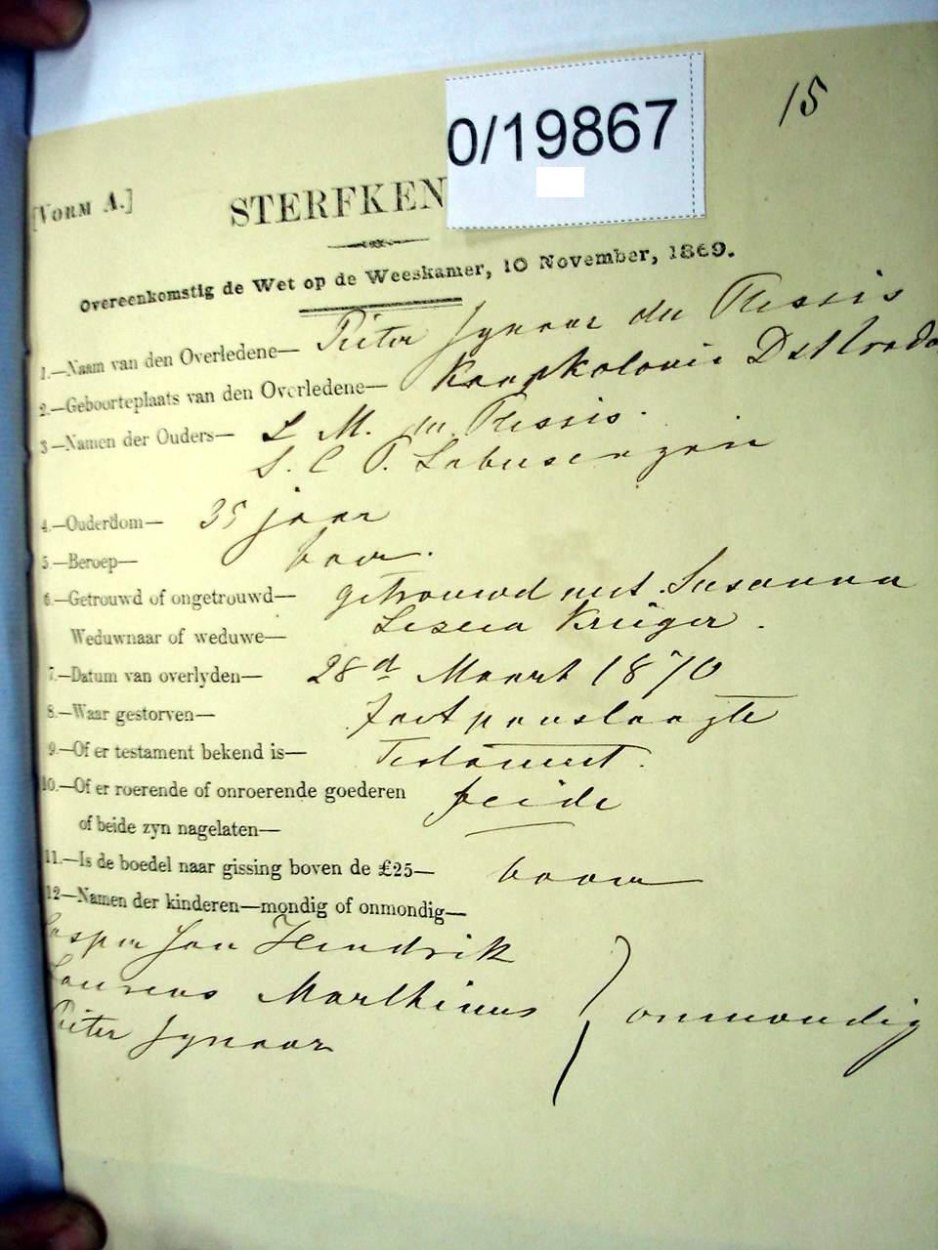 15
0/19867
[VORM A.]
STERFKEN
Overeenkomstig de Wet op de Weeskamer, 10 November, 1869.
1.—Naam van den Overledene— Pieter Jgnaar du Plessis
2.—Geboorteplaats van den Overledene— Kaapkolonie
3—Namen der Ouders— L M. du Plessis.
S. C P.
4.—Ouderdom— 35 jaar
5.—Beroep— boer.
6.—Getrouwd of ongetrouwd— getrouwd met Susanna
Weduwnaar of weduwe— Kruger.
7.—Datum van overlyden— 28d Maart 1870
8.—Waar gestorven—
9.—Of er testament bekend is— Testament.
10.—Of er roerende of onroerende goederen beide
of beide zyn nagelaten—
11.—Is de boedel naar gissing boven de £25— boven
12—Namen der kinderen—mondig of onmondig—
Jan Hendrik
Lourens Marthinus onmondig
Pieter Jgnaar